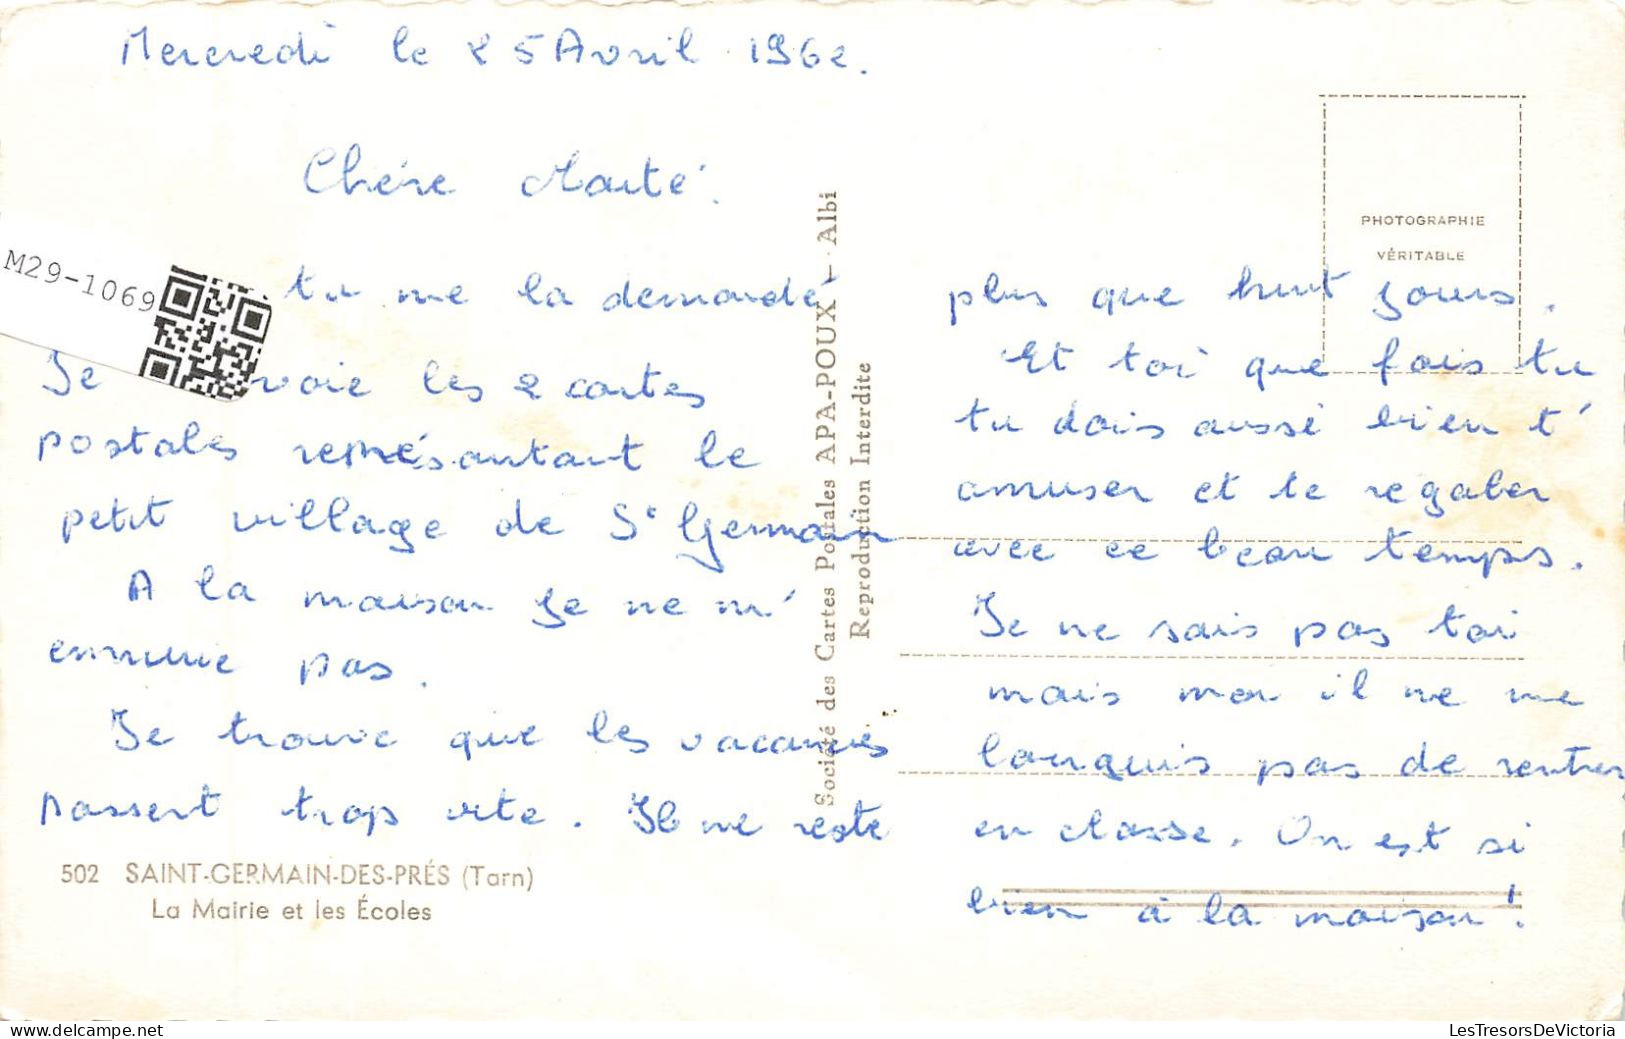 Mercredi le 25 Avril 1962.
Chère Maïté.
M29-1069
tu me la demandé
Je voie les 2 cartes
postales représantant le
petit village de St Germain
A la maison je ne m'
ennuie pas.
Je trouve que les vacances
passent trop vite. Il ne reste
502 SAINT-GERMAIN-DES-PRÉS (Tarn)
La Mairie et les Écoles
Société des Cartes Postales APA-POUX - Albi
Reproduction Interdite
PHOTOGRAPHIE
VÉRITABLE
plus que huit jours.
Et toi que fais tu
tu dois aussi bien t'
amuser et te regaler
avec ce beau temps.
Je ne sais pas toi
mais moi il ne me
languis pas de rentrer
en classe. On est si
bien à la maison!
LesTresorsDeVictoria